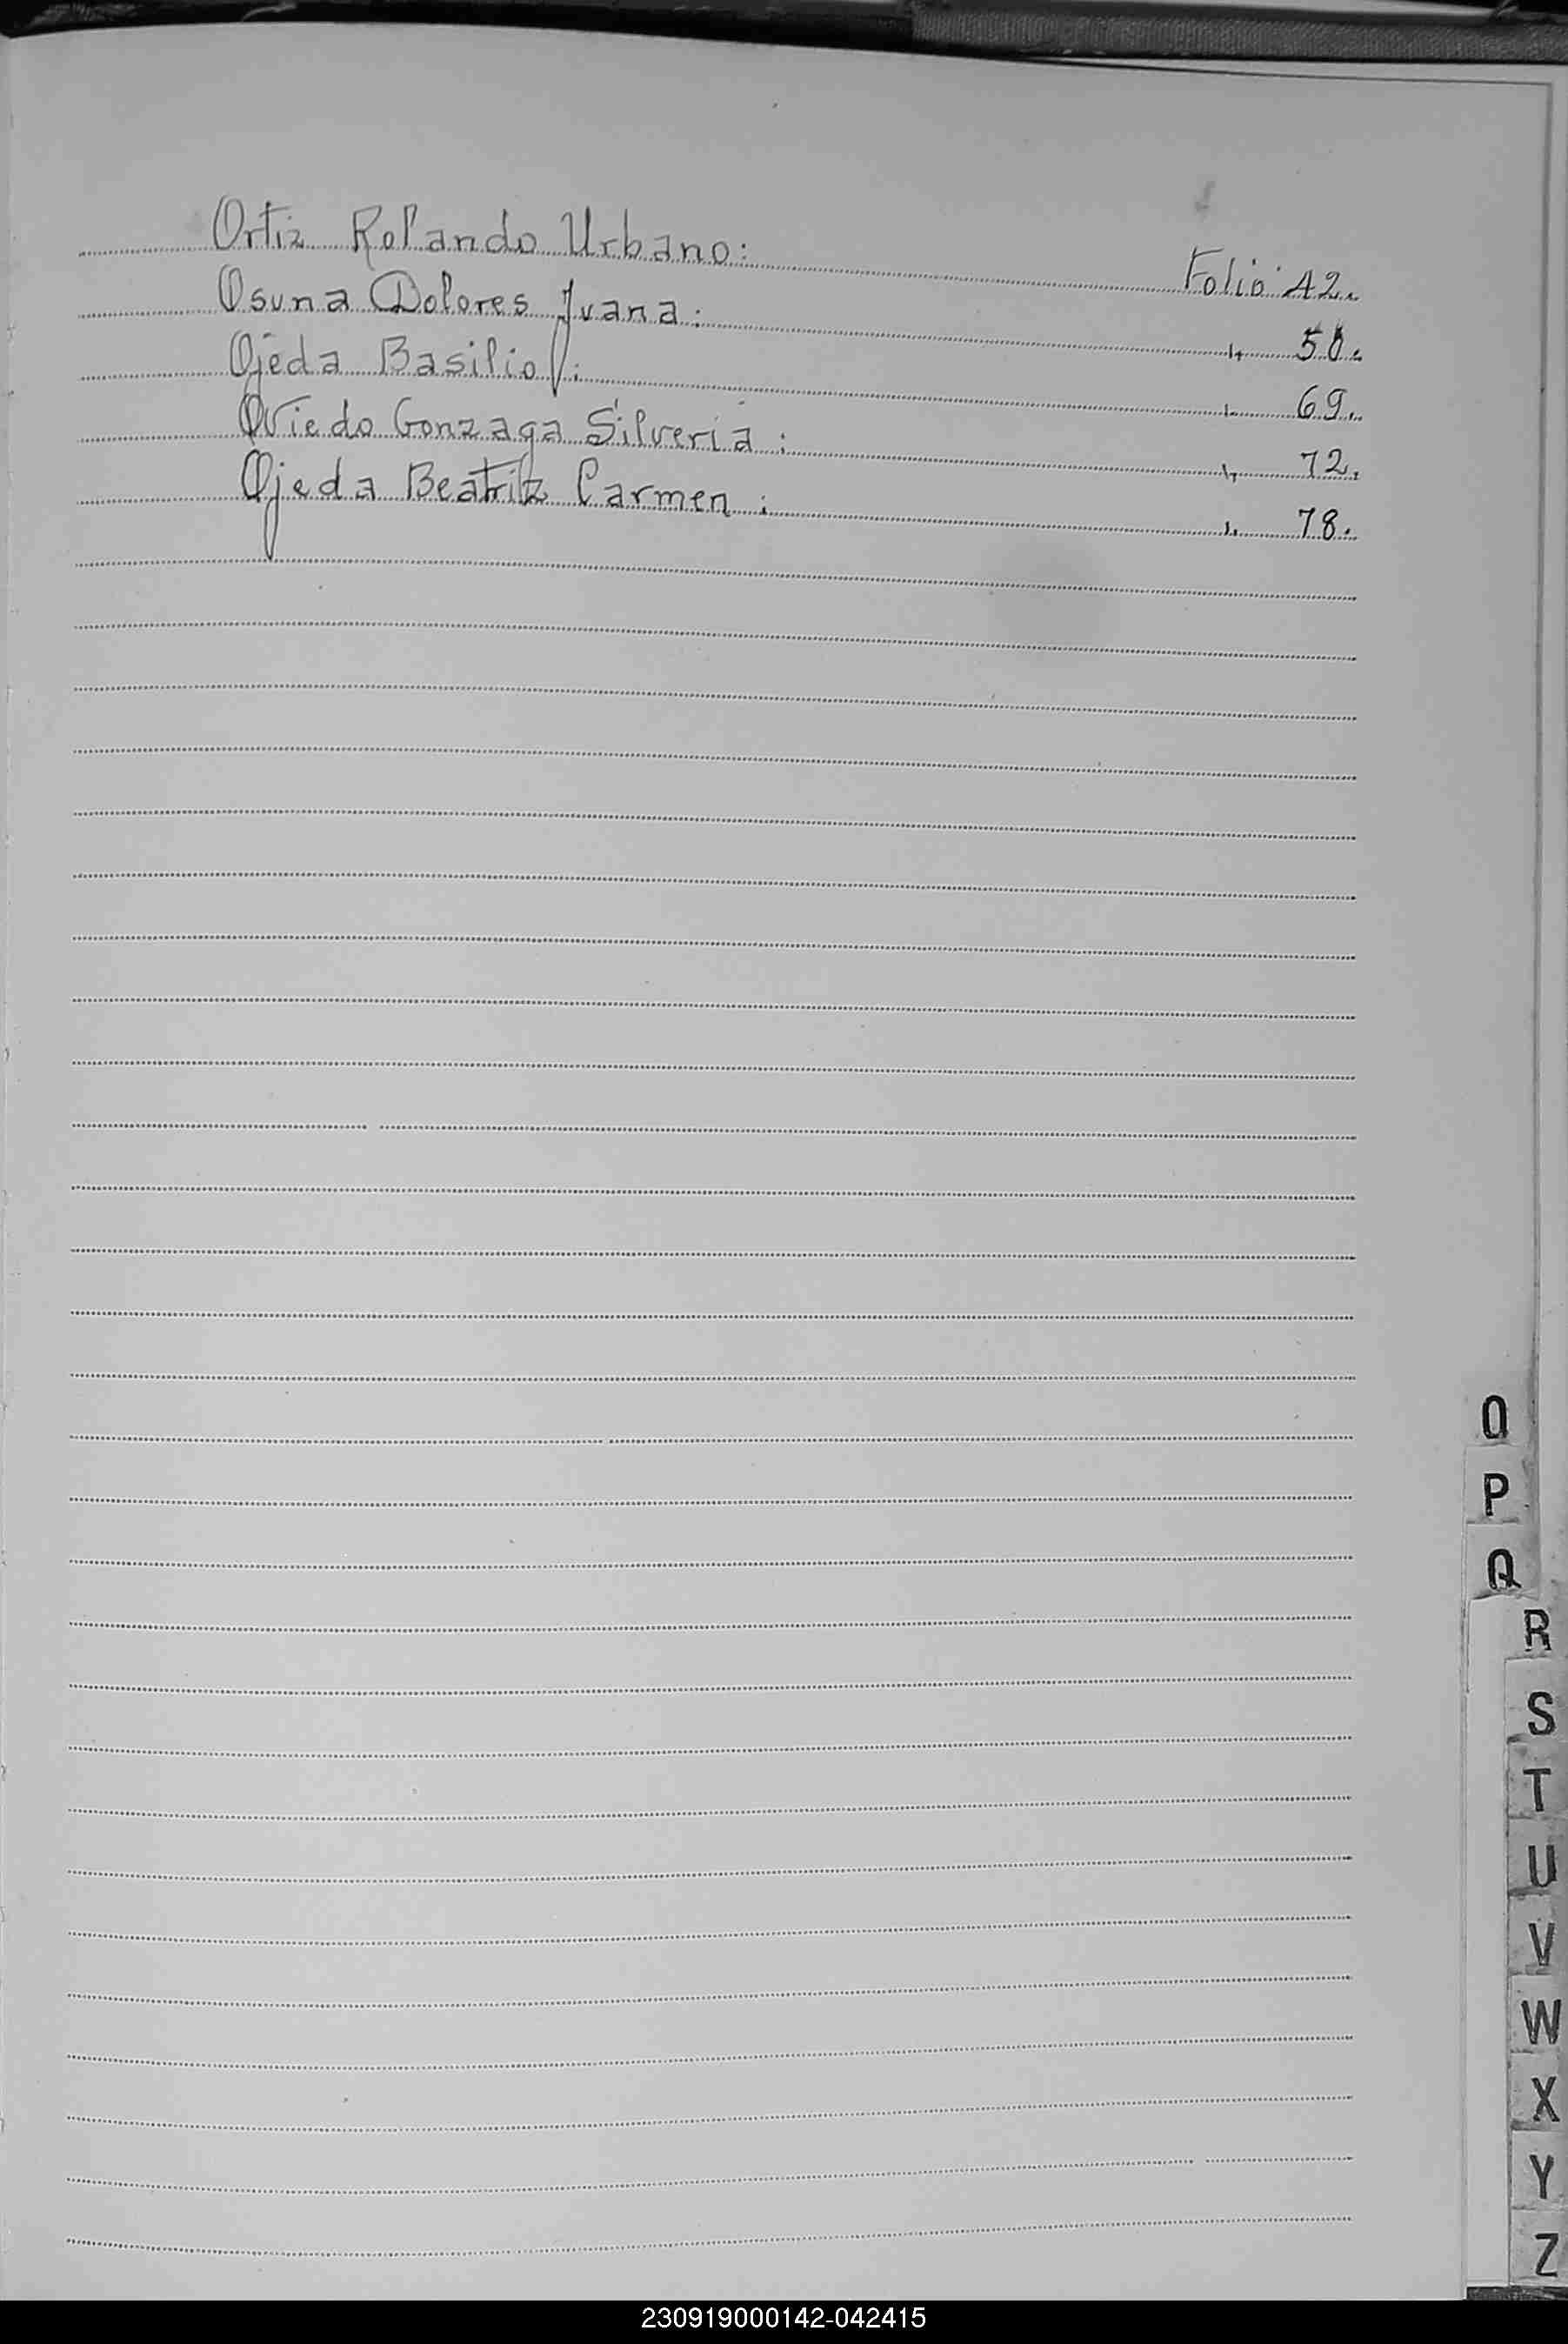 Ortiz Rolando Urbano: Folio 42.
Osuna Dolores Juana: " 50.
Ojeda Basilio: " 69.
Oviedo Gonzaga Silveria: " 72.
Ojeda Beatriz Carmen: " 78.
O
P
Q
R
S
T
U
V
W
X
Y
Z
230919000142-042415